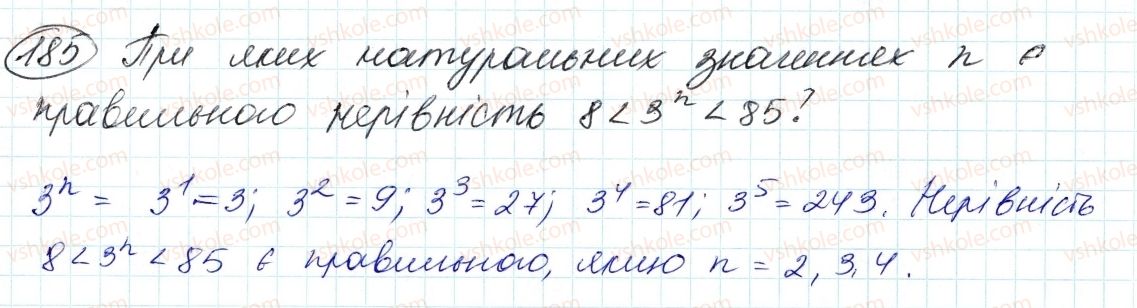 185 При яких натуральних значеннях n є
правильною нерівність 8 < 3ⁿ < 85?
3ⁿ = 3¹ = 3; 3² = 9; 3³ = 27; 3⁴ = 81; 3⁵ = 243. Нерівність
8 < 3ⁿ < 85 є правильною, якщо n = 2, 3, 4.